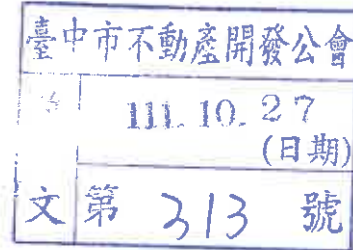 臺中市不動產開發公會
111. 10. 27
(日期)
文 第 313 號